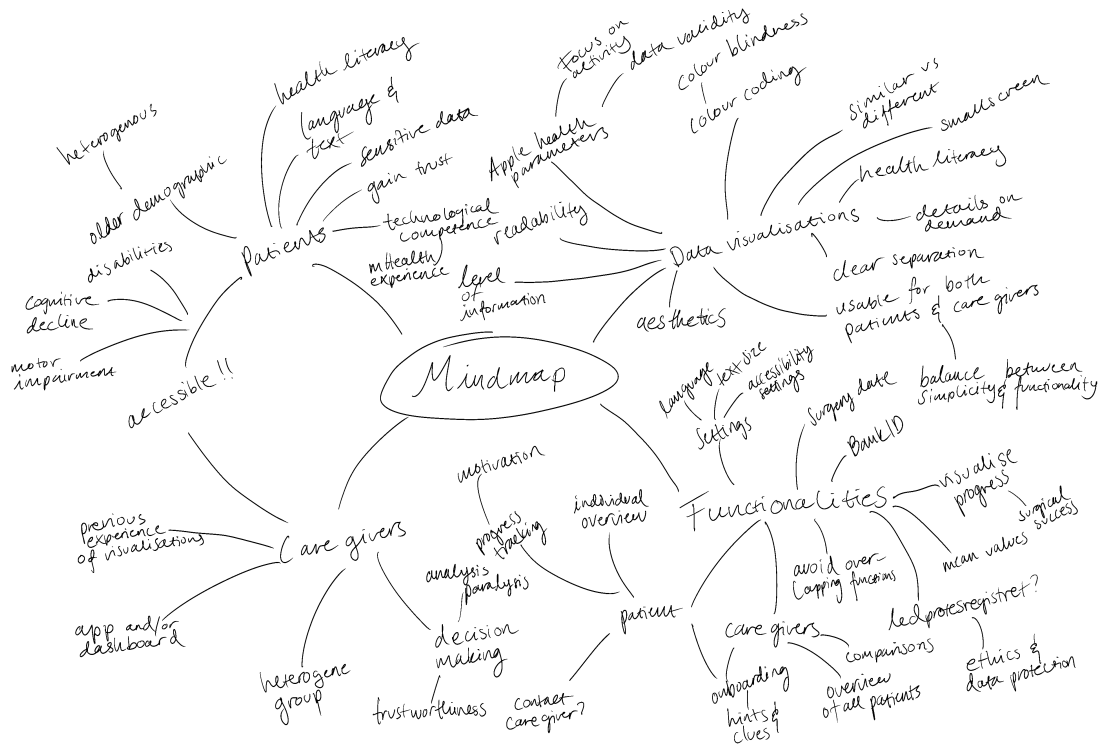 Mindmap
Patients
heterogenous
older demographic
health literacy
language &
text
sensitive data
gain trust
technological
competence
mHealth
experience
accessible !!
disabilities
cognitive
decline
motor
impairment
Data visualisations
Focus on
activity
data validity
Apple health
parameters
readability
level
of
information
aesthetics
colour blindness
colour coding
similar vs
different
small screen
health literacy
details on
demand
clear separation
usable for both
patients & care givers
balance between
simplicity & functionality
Functionalities
language
text size
accessibility
settings
Settings
Surgery date
BankID
visualise
progress
surgical
success
mean values
ledprotesregistret?
ethics &
data protection
avoid over-
lapping functions
care givers
comparisons
overview
of all patients
onboarding
hints &
clues
patient
individual
overview
progress
tracking
motivation
contact
caregiver?
Care givers
previous
experience
of visualisations
app and/or
dashboard
heterogene
group
decision
making
analysis
paralysis
trustworthiness